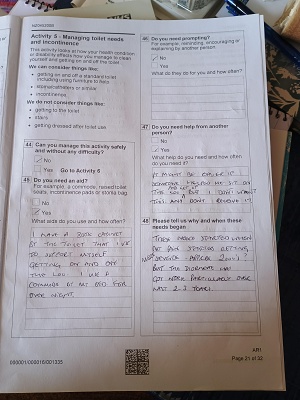 Activity 5 - Managing toilet needs
and incontinence
This activity looks at how your health condition
or disability affects how you manage to clean
yourself and getting on and off the toilet.
We can consider things like:
• getting on and off a standard toilet
including using furniture to
• stomas/catheters or similar
• incontinence
We do not consider things like:
• getting to the toilet
• stairs
• getting dressed after toilet use
44 Can you manage this activity safely
and without any difficulty?
No
Yes Go to Activity 6
45 Do you need an aid?
For example, a commode, raised toilet
seats, incontinence pads or stoma bag
No
Yes
What aids do you use and how often?
I HAVE A CABINET
BY THE TOILET THAT I USE
TO SUPPORT MYSELF
GETTING ON AND OFF
THE LOO. I USE A
COMMODE BY MY BED FOR
OVER NIGHT.
46 Do you need prompting?
For example, reminding, encouraging or
explaining by another person
No
Yes
What do they do for you and how often?
47 Do you need help from another
person?
No
Yes
What help do you need and how often
do you need it?
IT MIGHT BE EASIER IF
SOMEONE HELPED ME SIT ON
THE LOO BUT I DON'T WANT
THIS AND DON'T
48 Please tell us why and when these
needs began
THESE NEEDS STARTED WHEN
MY STARTED GETTING
SEVERE
BUT THE HAS
GOT WORSE PARTICULARLY OVER
LAST 2-3 YEARS.
000001/000016/001335
AR1
Page 21 of 32